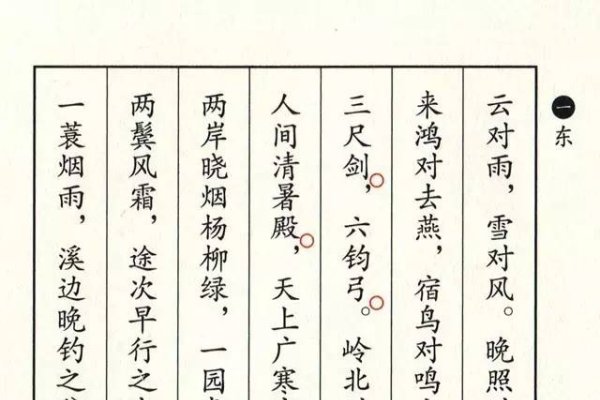 一东
云对雨，雪对风。晚照
来鸿对去燕，宿鸟对鸣
三尺剑，六钧弓。岭北
人间清暑殿，天上广寒
两岸晓烟杨柳绿，一园
两鬓风霜，途次早行之
一蓑烟雨，溪边晚钓之